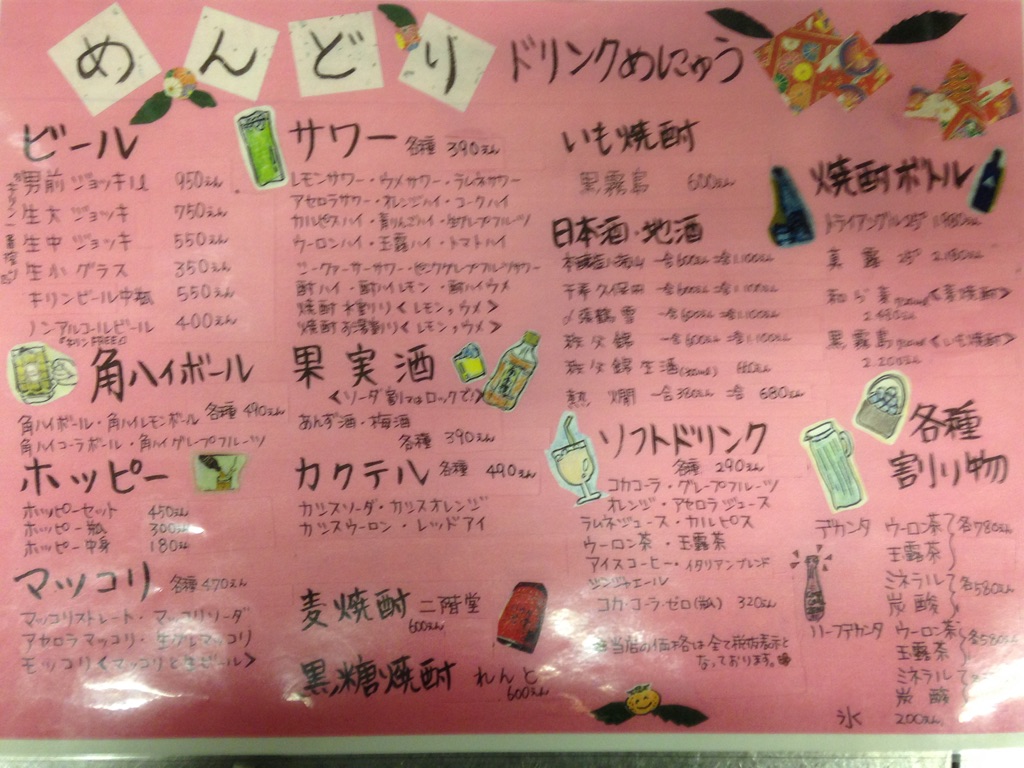 めんどり ドリンクめにゅう
ビール
男前ジョッキ1ℓ 950えん
生大ジョッキ 750えん
生中ジョッキ 550えん
生小グラス 350えん
キリンビール中瓶 550えん
ノンアルコールビール 400えん
『キリンFREE』
角ハイボール
角ハイボール・角ハイレモンボール 各種 490えん
角ハイコーラボール・角ハイグレープフルーツ
ホッピー
ホッピーセット 450えん
ホッピー瓶 300えん
ホッピー中身 180えん
マッコリ 各種 470えん
マッコリストレート・マッコリソーダ
アセロラマッコリ・生グレマッコリ
モッコリ<マッコリと生ビール>
サワー 各種 390えん
レモンサワー・ウメサワー・ラムネサワー
アセロラサワー・オレンジハイ・コークハイ
カルピスハイ・青りんごハイ・生グレープフルーツ
ウーロンハイ・玉露ハイ・トマトハイ
シークァーサーサワー・ピンクグレープフルーツサワー
酎ハイ・酎ハイレモン・酎ハイウメ
焼酎水割り<レモン,ウメ>
焼酎お湯割り<レモン,ウメ>
果実酒
<ソーダ割又はロックで!>
あんず酒・梅酒
各種 390えん
カクテル 各種 490えん
カシスソーダ・カシスオレンジ
カシスウーロン・レッドアイ
麦焼酎 二階堂
600えん
黒糖焼酎 れんと
600えん
いも焼酎
黒霧島 600えん
日本酒・地酒
一合600えん 二合1.100えん
千寿久保田 一合600えん 二合1.100えん
〆張鶴 雪 一合600えん 二合1.100えん
秩父錦 一合600えん 二合1.100えん
秩父錦 生酒(300ml)
熱燗 一合380えん 二合 680えん
ソフトドリンク
各種 290えん
コカコーラ・グレープフルーツ
オレンジ・アセロラジュース
ラムネジュース・カルピス
ウーロン茶・玉露茶
アイスコーヒー・イタリアンブレンド
ジンジャエール
コカ・コーラ・ゼロ(瓶) 320えん
当店の価格は全て税抜表示と
なっております。
焼酎ボトル
トライアングル25° 1.980えん
真露 25° 2.180えん
和ら麦 900ml <麦焼酎>
2.480えん
黒霧島 900ml <いも焼酎>
2.200えん
各種
割り物
デカンタ ウーロン茶 各780えん
玉露茶
ミネラル 各580えん
炭酸
ハーフデカンタ ウーロン茶 各580えん
玉露茶
ミネラル
炭酸
氷 200えん